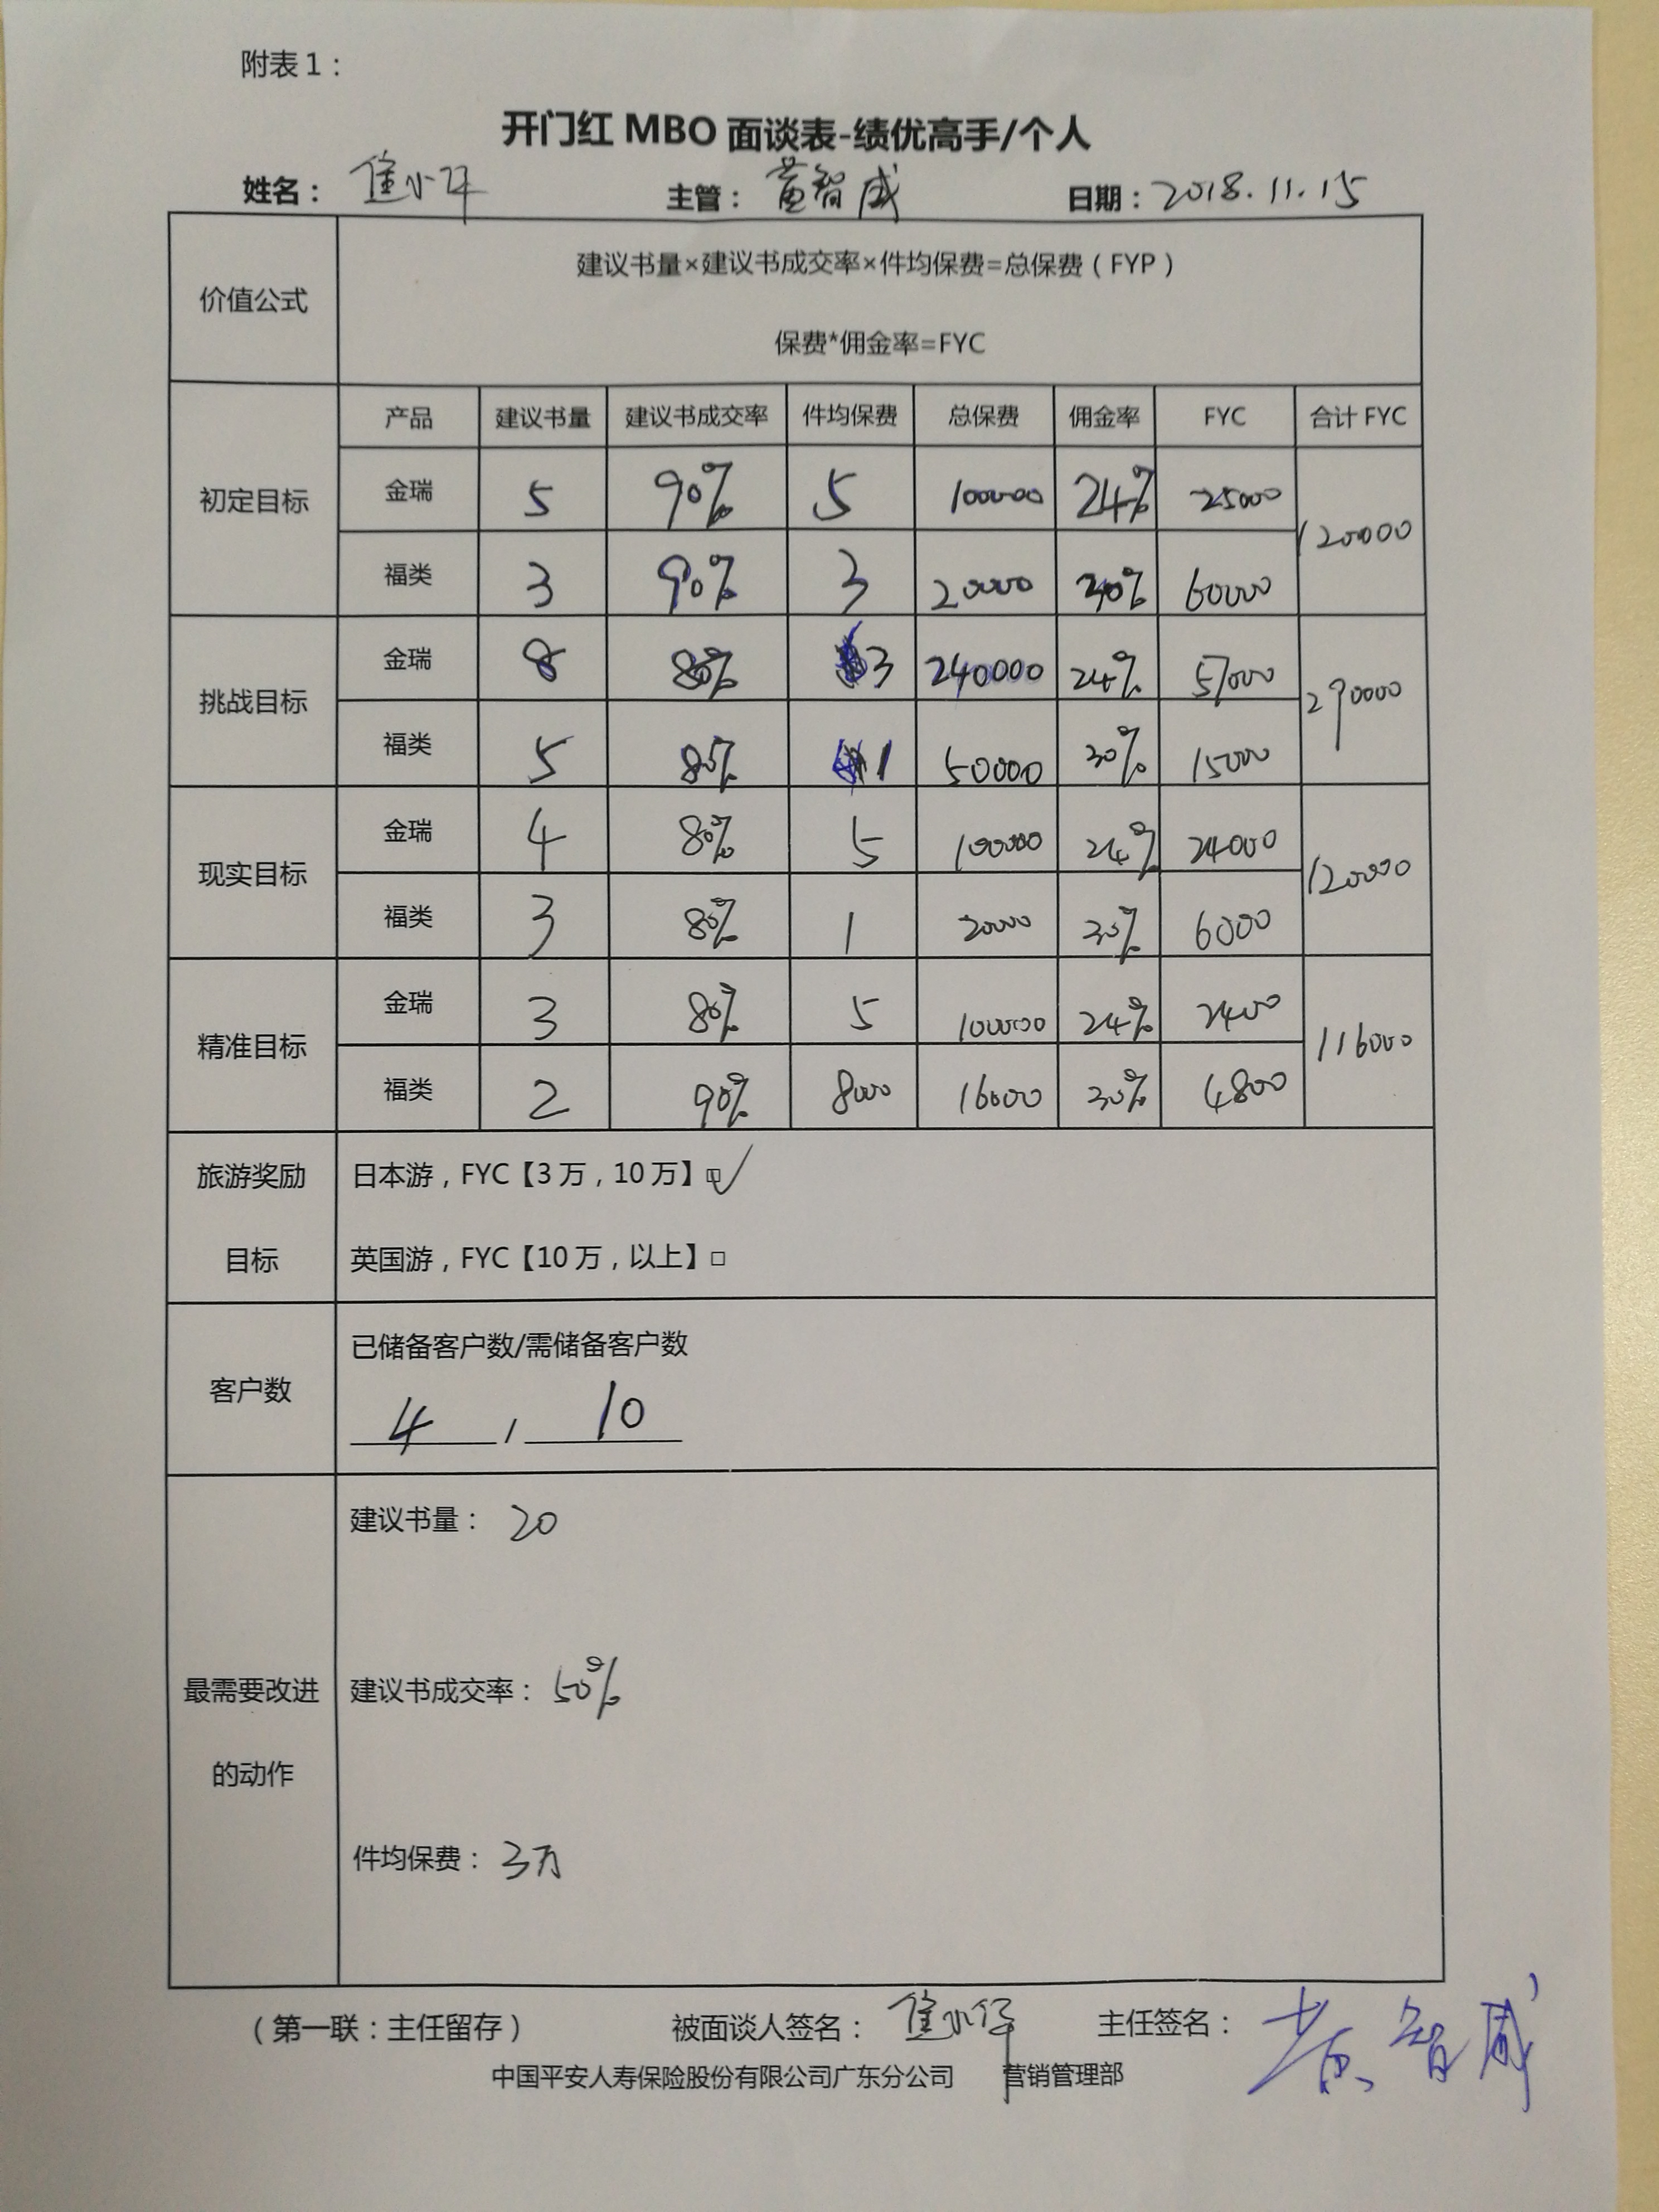 附表1：
开门红 MBO 面谈表-绩优高手/个人
姓名： 主管：黄智威 日期：2018.11.15
价值公式
建议书量×建议书成交率×件均保费=总保费（FYP）
保费*佣金率=FYC
产品 建议书量 建议书成交率 件均保费 总保费 佣金率 FYC 合计 FYC
初定目标
金瑞 5 90% 5 100000 24% 25000
120000
福类 3 90% 3 20000 30% 60000
挑战目标
金瑞 8 80% 3 240000 24% 57000
290000
福类 5 80% 1 50000 30% 15000
现实目标
金瑞 4 80% 5 100000 24% 24000
120000
福类 3 80% 1 20000 30% 6000
精准目标
金瑞 3 80% 5 100000 24% 2400
116000
福类 2 90% 8000 16000 30% 4800
旅游奖励
目标
日本游，FYC【3 万，10 万】☑
英国游，FYC【10 万，以上】□
客户数
已储备客户数/需储备客户数
4 / 10
最需要改进
的动作
建议书量： 20
建议书成交率： 50%
件均保费： 3万
（第一联：主任留存） 被面谈人签名： 主任签名：黄智威
中国平安人寿保险股份有限公司广东分公司 营销管理部